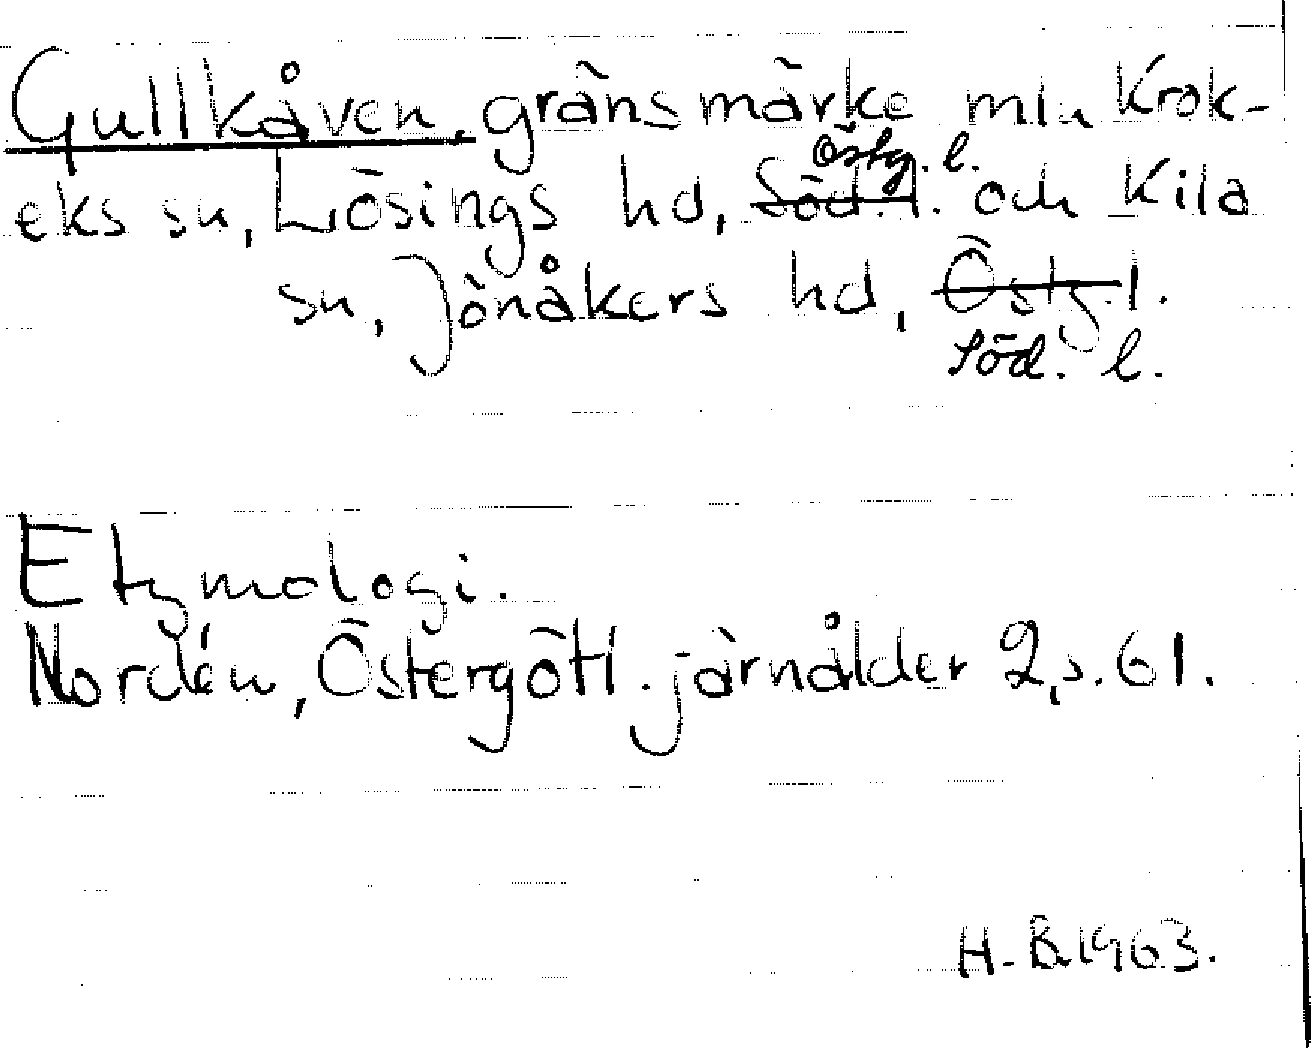 Gullkåven, gränsmärke mln Krok-
Östg. l.
eks sn, Lösings hd, Söd. l. och Kila
sn, Jönåkers hd, Östg. l.
Söd. l.
Etymologi.
Nordén, Östergötl. järnålder 2, s. 61.
H. B. 1963.